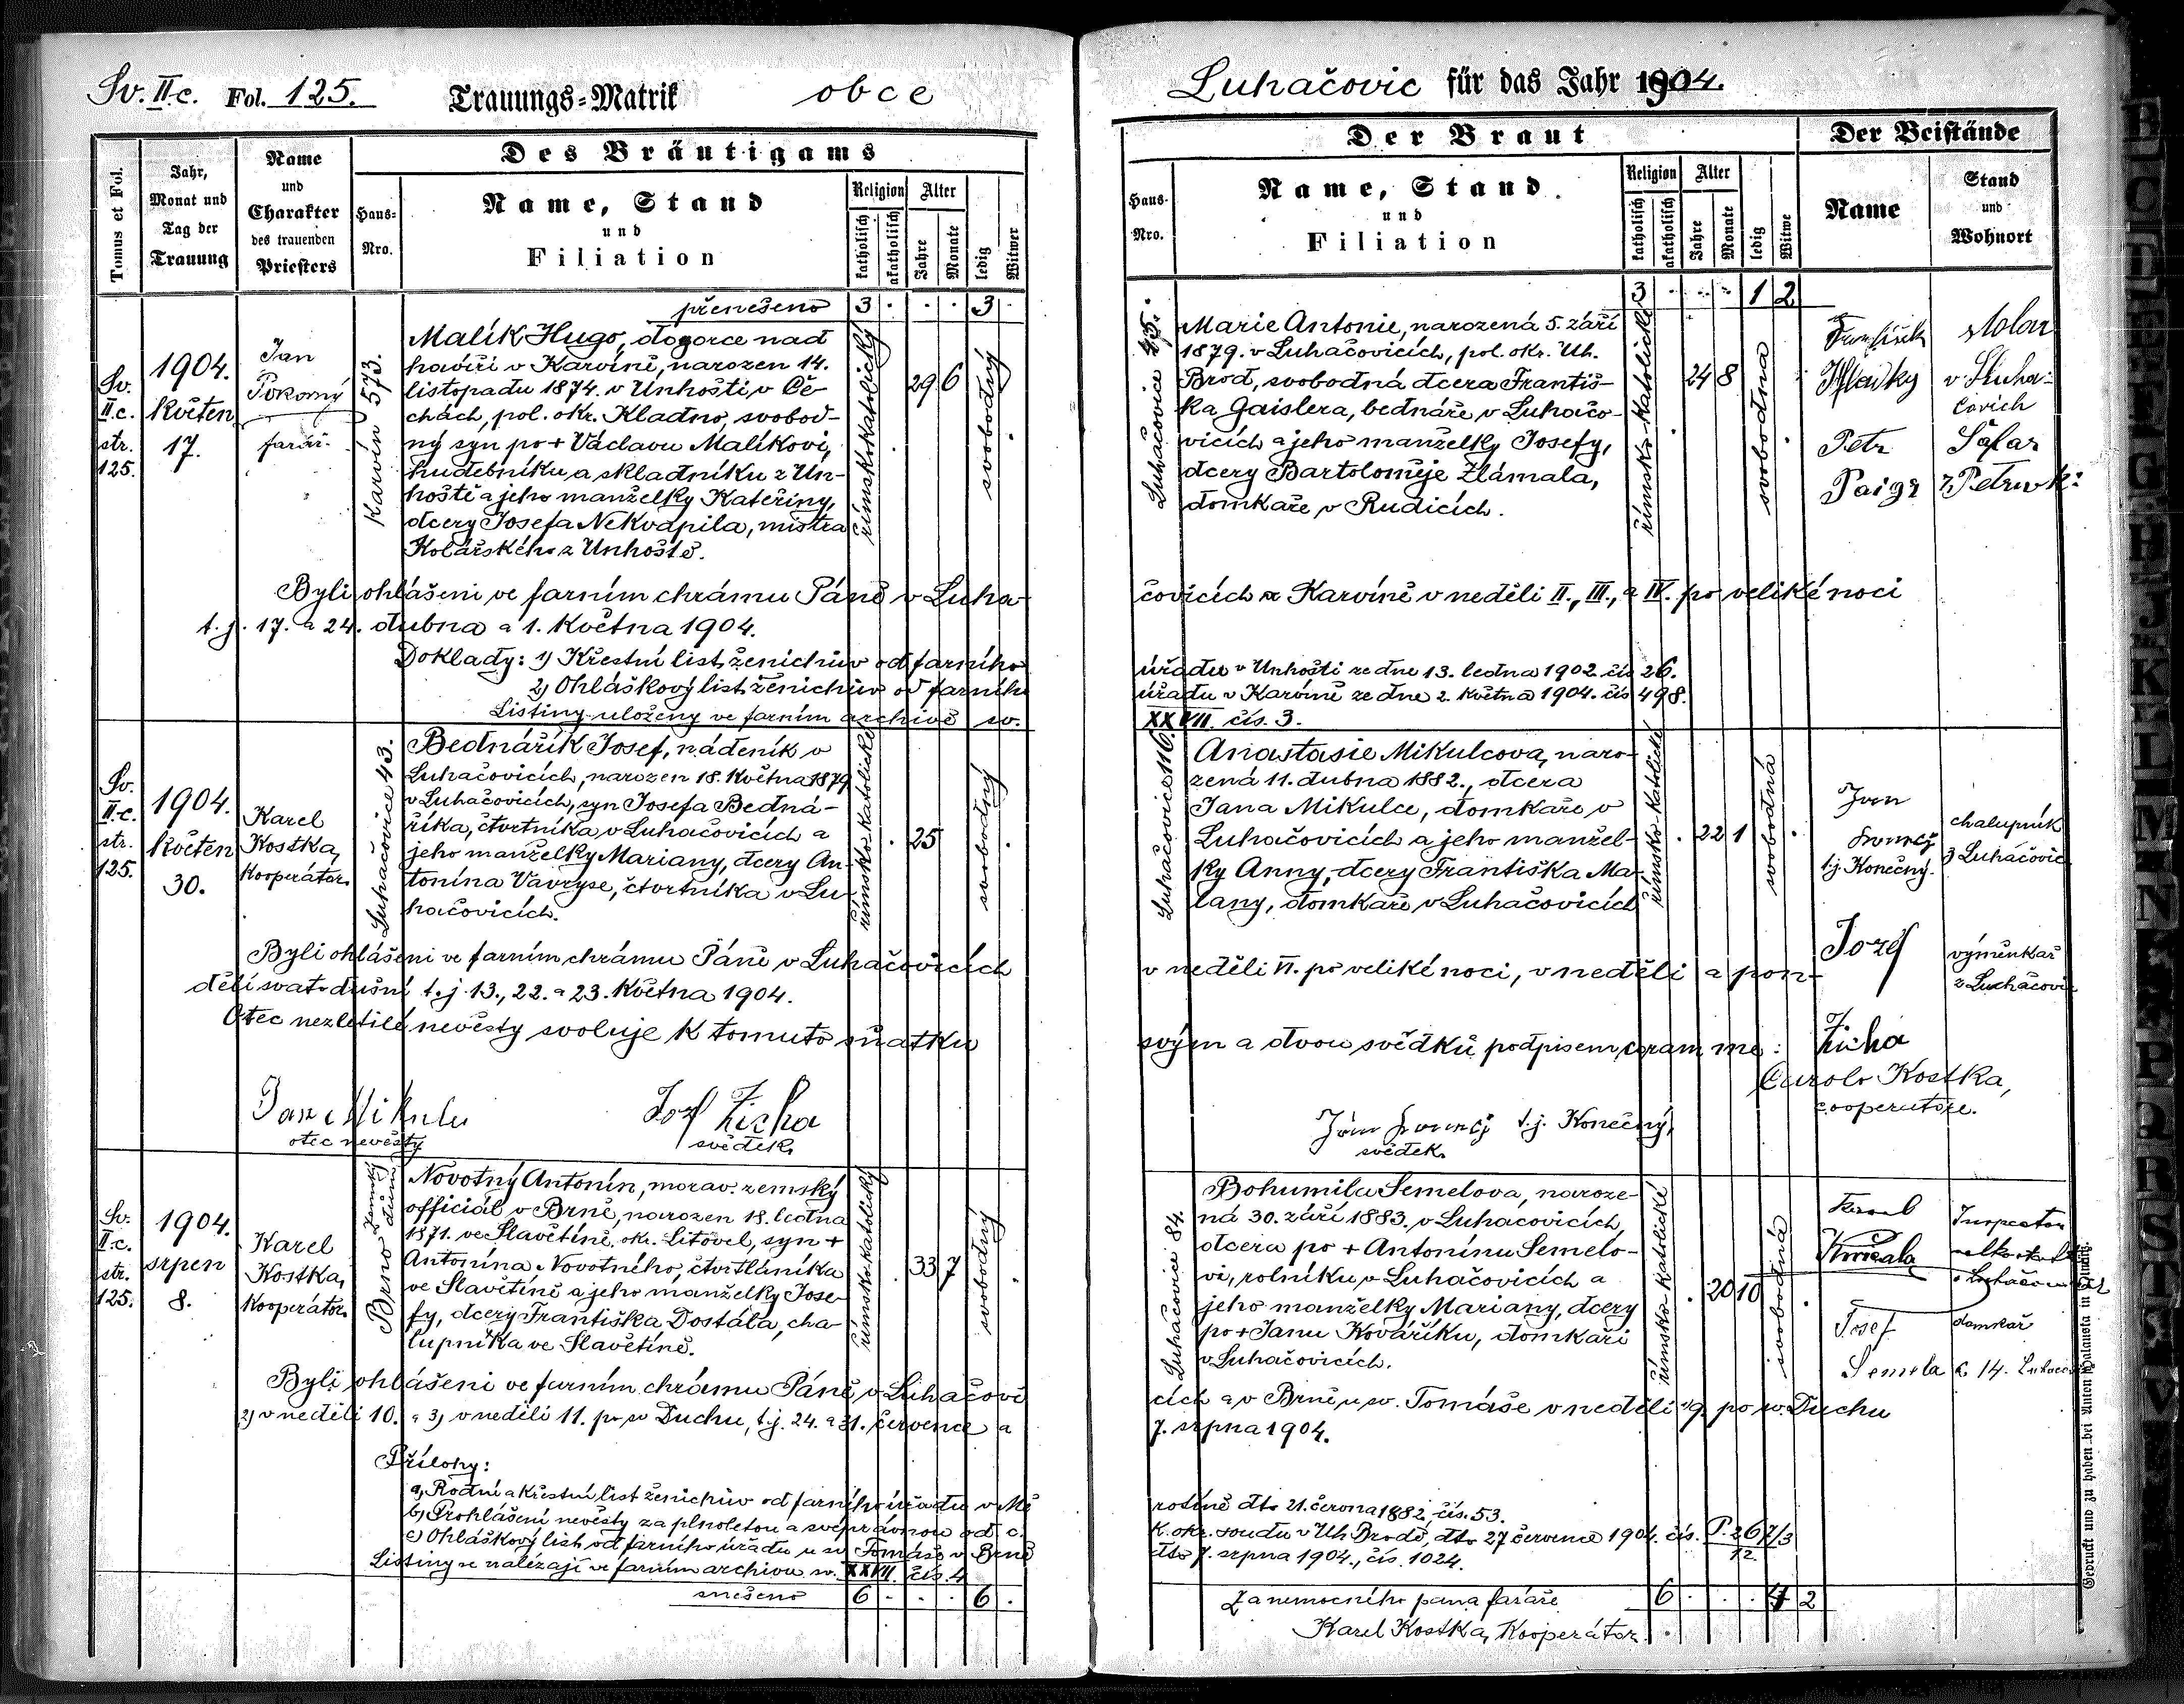 Sv. II.c. Fol. 125. Trauungs=Matrik obce
Tomus et Fol.
Jahr,
Monat und
Tag der
Trauung
Name
und
Charakter
des trauenden
Priesters
Des Bräutigams
Haus=
Nro.
Name, Stand
und
Filiation
Religion
katholisch
akatholisch
Alter
Jahre
Monate
ledig
Witwer
přenešeno 3 . . . 3 .
Sv.
II.c.
str.
125.
1904.
květen
17.
Jan
Pokorný
farář.
Karvín 573.
Malík Hugo, dozorce nad
havíři v Karvíně, narozen 14.
listopadu 1874. v Unhošti v Če-
chách, pol. okr. Kladno, svobod-
ný syn po + Václavu Malíkovi,
hudebníku a skladníku z Un-
hoště a jeho manželky Kateřiny,
dcery Josefa Nekvapila, mistra
Kolářského z Unhoště.
římsko-katolický
29 6
svobodný
Byli ohlášeni ve farním chrámu Páně v Luha-
t.j. 17. a 24. dubna a 1. května 1904.
Doklady: 1) Křestní list ženichův od farního
2) Ohláškový list ženichův od farního
Listiny uloženy ve farním archivě sv.
Sv.
II.c.
str.
125.
1904.
květen
30.
Karel
Kostka,
kooperátor.
Luhačovice 43.
Bednářík Josef, nádeník v
Luhačovicích, narozen 18. května 1879
v Luhačovicích, syn Josefa Bedná-
říka, čtvrtníka v Luhačovicích a
jeho manželky Mariany, dcery An-
tonína Vavryse, čtvrtníka v Lu-
hačovicích.
římsko-katolické
25
svobodný
Byli ohlášeni ve farním chrámu Páně v Luhačovicích
dělí svatodušní t.j. 13., 22. a 23. května 1904.
Otec nezletilé nevěsty svoluje k tomuto sňatku
Jan Mikulec
otec nevěsty
Josef Zicha
svědek.
Sv.
II.c.
str.
125.
1904.
srpen
8.
Karel
Kostka,
kooperátor.
Brno Zemský dům
Novotný Antonín, morav. zemský
officiál v Brně, narozen 18. ledna
1871. ve Slavětíně, okr. Litovel, syn +
Antonína Novotného, čtvrtláníka
ve Slavětíně a jeho manželky Jose-
fy, dcery Františka Dostála, cha-
lupníka ve Slavětíně.
římsko-katolický
33 7
svobodný
Byli ohlášeni ve farním chrámu Páně v Luhačovi-
2) v neděli 10. a 3) v neděli 11. po sv Duchu, t.j. 24. a 31. července a
Přílohy:
a) Rodní a křestní list ženichův od farního úřadu v Mě
b) Prohlášení nevěsty za plnoletou a svéprávnou od c.
c) Ohláškový list od farního úřadu u sv. Tomáše v Brně
Listiny se nalézají ve farním archivu sv. XXVII. čís. 4
snešeno 6 . . . 6 .
Luhačovic für das Jahr 1904.
Der Braut
Der Beistände
Haus-
Nro.
Name, Stand
und
Filiation
Religion
katholisch
akatholisch
Alter
Jahre
Monate
ledig
Witwe
Name
Stand
und
Wohnort
3 . . . 1 2
Luhačovice
Marie Antonie, narozená 5. září
1879. v Luhačovicích, pol. okr. Uh.
Brod, svobodná dcera Františ-
ka Gaislera, bednáře v Luhačo-
vicích a jeho manželky Josefy,
dcery Bartoloměje Zlámala,
domkaře v Rudicích.
římsko-katolické
24 8
svobodná
František
Petr
čovicích a Karvíně v neděli II., III., a IV. po veliké noci
úřadu v Unhošti ze dne 13. ledna 1902. čís 26.
úřadu v Karvíně ze dne 2. května 1904. čís 498.
XXVII. čís. 3.
Luhačovice 110.
Anastasie Mikulcova, naro-
zená 11. dubna 1882., dcera
Jana Mikulce, domkaře v
Luhačovicích a jeho manžel-
ky Anny, dcery Františka Ma-
lany, domkaře v Luhačovicích
římsko-katolické
22 1
svobodná
Jan
t.j. Konečný.
chalupník
z Luhačovic
Jozef
Zicha
výměnkař
z Luhačovic
v neděli VI. po veliké noci, v neděli a pon-
svým a dvou svědků podpisem, coram me:
Carolo Kostka,
cooperatore.
t.j. Konečný,
svědek.
Luhačovice 84.
Bohumila Semelova, naroze-
ná 30. září 1883. v Luhačovicích,
dcera po + Antonínu Semelo-
vi, rolníku v Luhačovicích a
jeho manželky Mariany, dcery
po + Janu Kováříku, domkaři
v Luhačovicích.
římsko-katolické
20 10
svobodná
Karel
Josef
Semela
domkař
č 14.
cích a v Brně u sv. Tomáše v neděli 9. po sv. Duchu
7. srpna 1904.
rotíně dto 21. června 1882, čís. 53.
k. okr. soudu v Uh. Brodě, dto 27 července 1904. čís. P. 267/3
12
dto 7. srpna 1904., čís. 1024.
6 . . . 4 2
Za nemocného pana faráře
Karel Kostka, kooperátor.